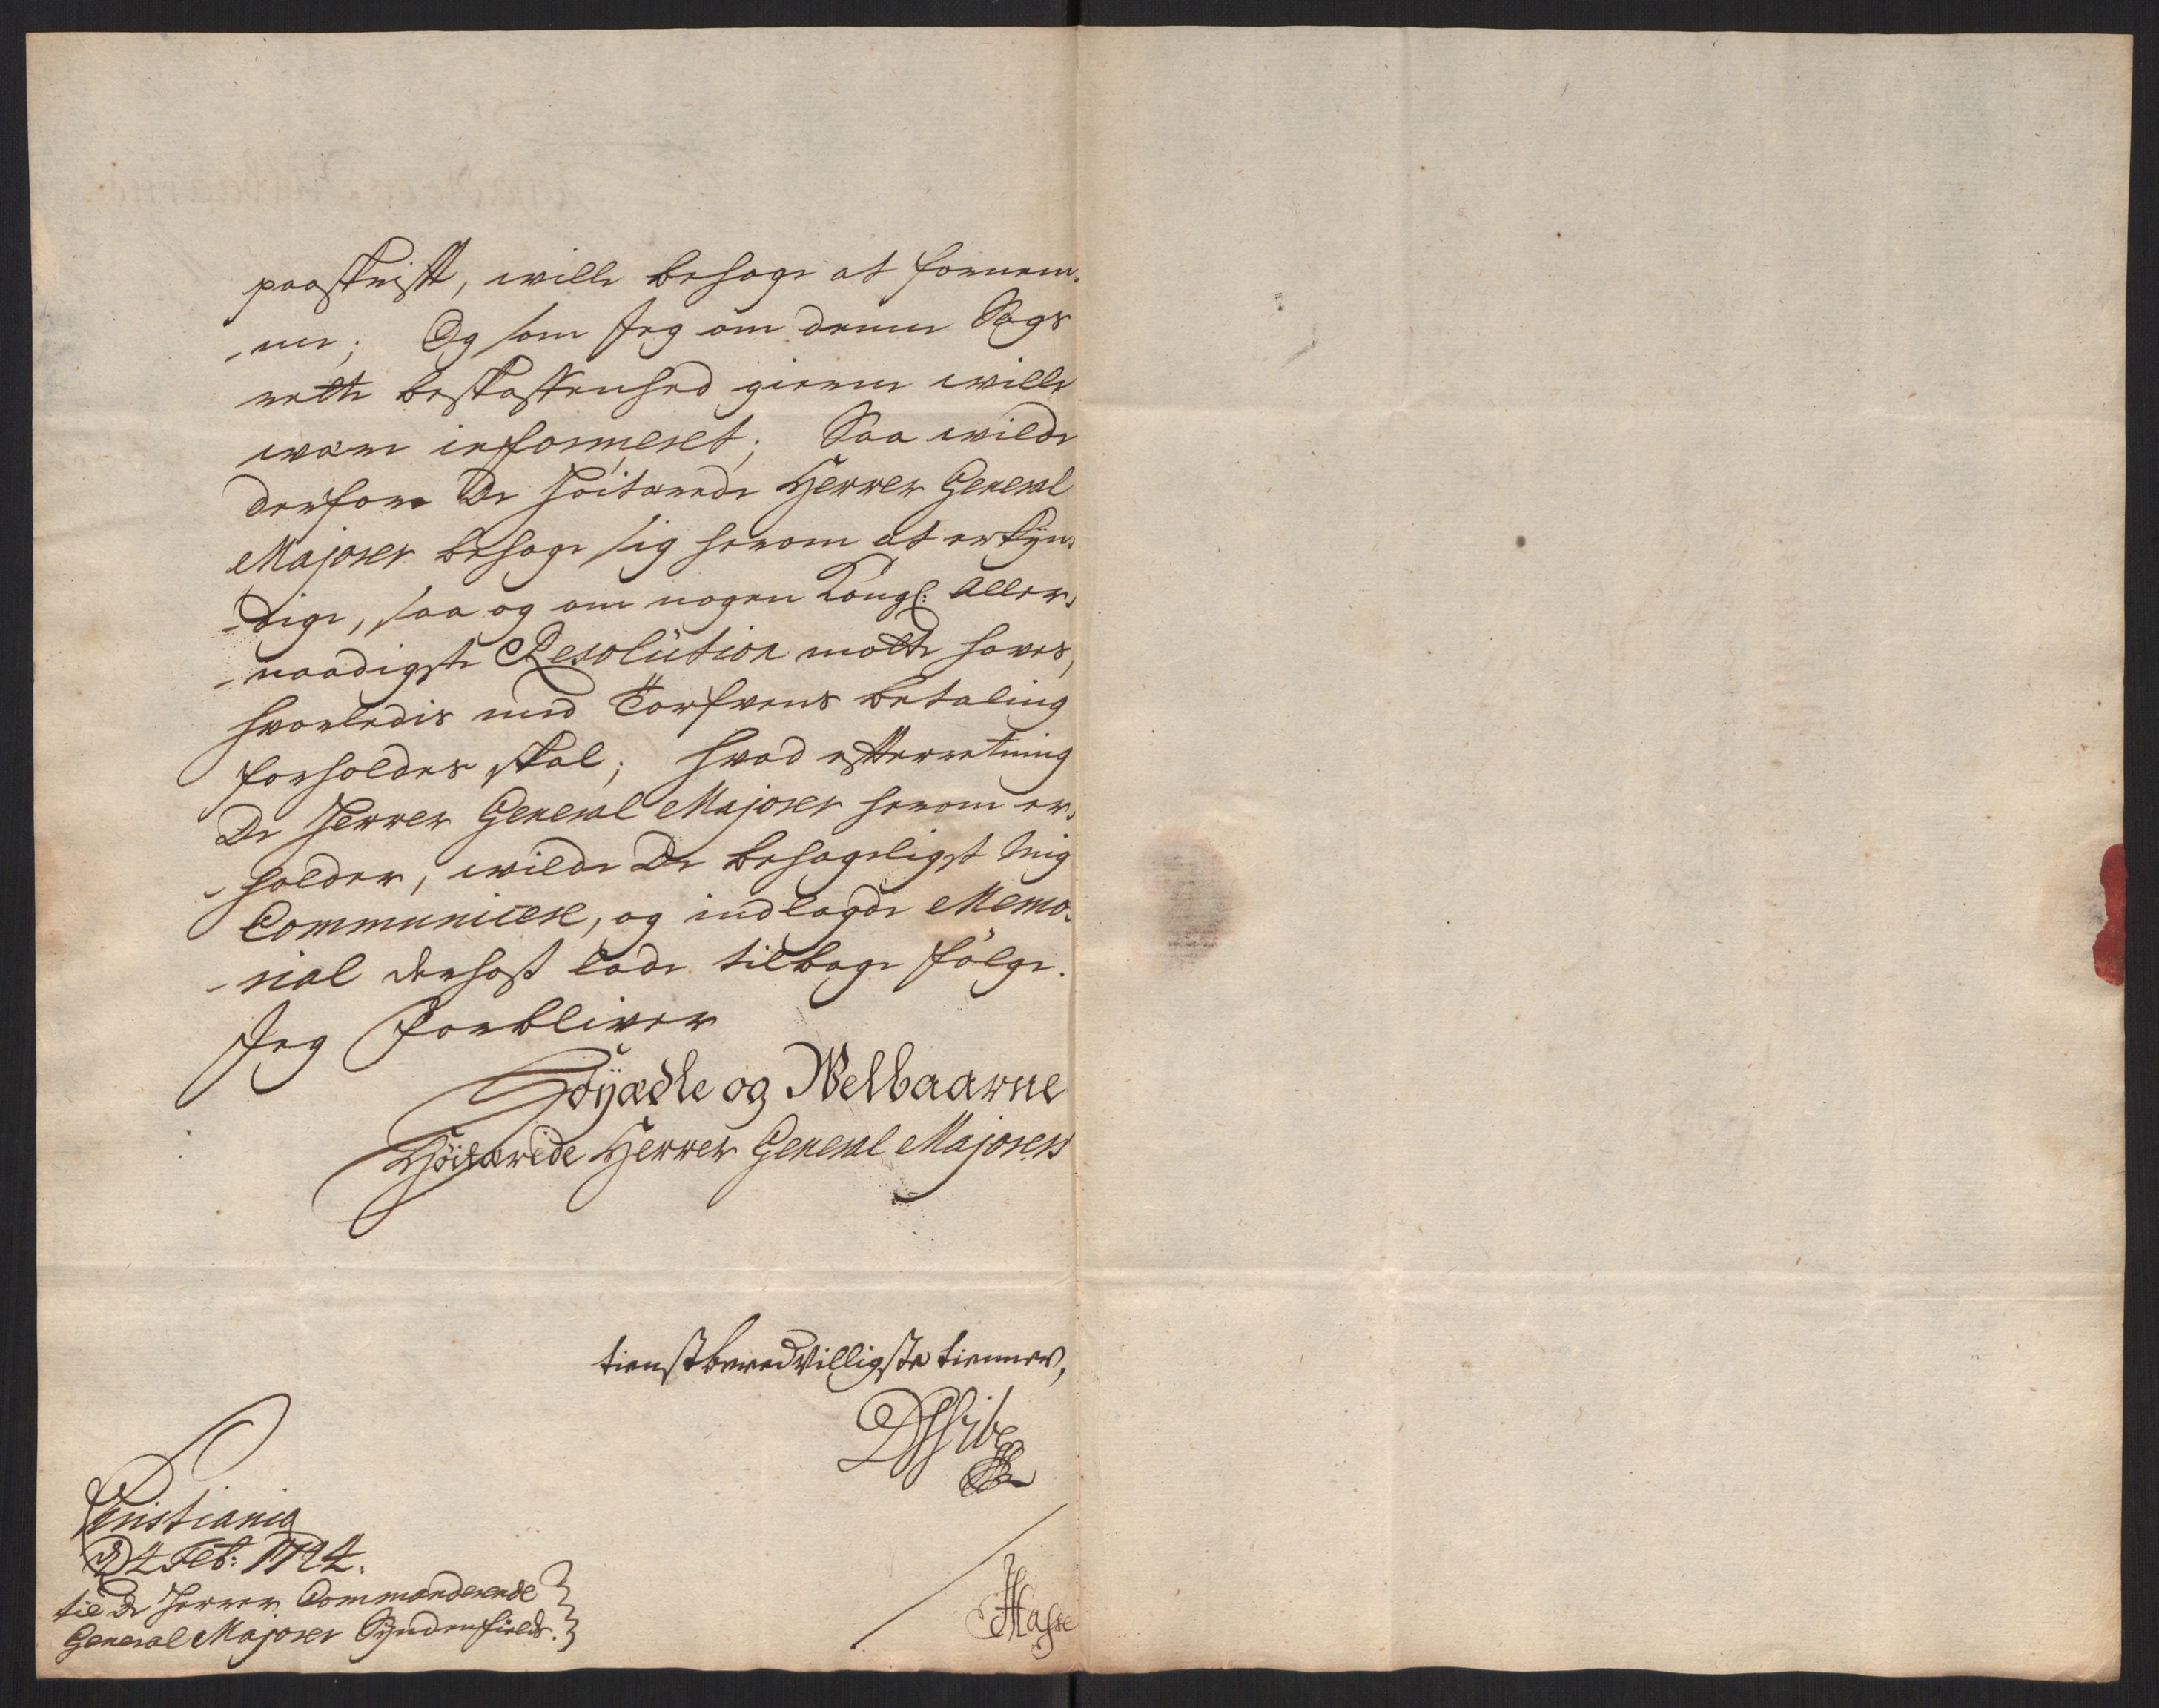 paaskrift, wille behage at fornem-
-me; Og som Jeg om denne Sags
rette beskaffenhed gierne wille
wære informeret; Saa wilde
derfore De Höitærede Herrer General
Majorer behage sig herom at erkÿn-
-dige, saa og om nogen Kongl: Aller-
-naadigste Resolution motte haves,
hvorledis med Törfvens betaling
forholdes skal; hvad efterretning
De Herrer General Majorer herom er-
-holder, wilde De behageligst Mig
Communicere, og indlagde Memo-
-rial derhos lade tilbage fölge.
Jeg Forbliver
Höÿædle og Welbaarne
Höitærede Herrer General Majorers
tienstberedvilligste tienner,
DWibe
Christiania
D 4 Feb: 1724.
til De Herrer Commanderende
General Majorer Syndenfields.
Hasse